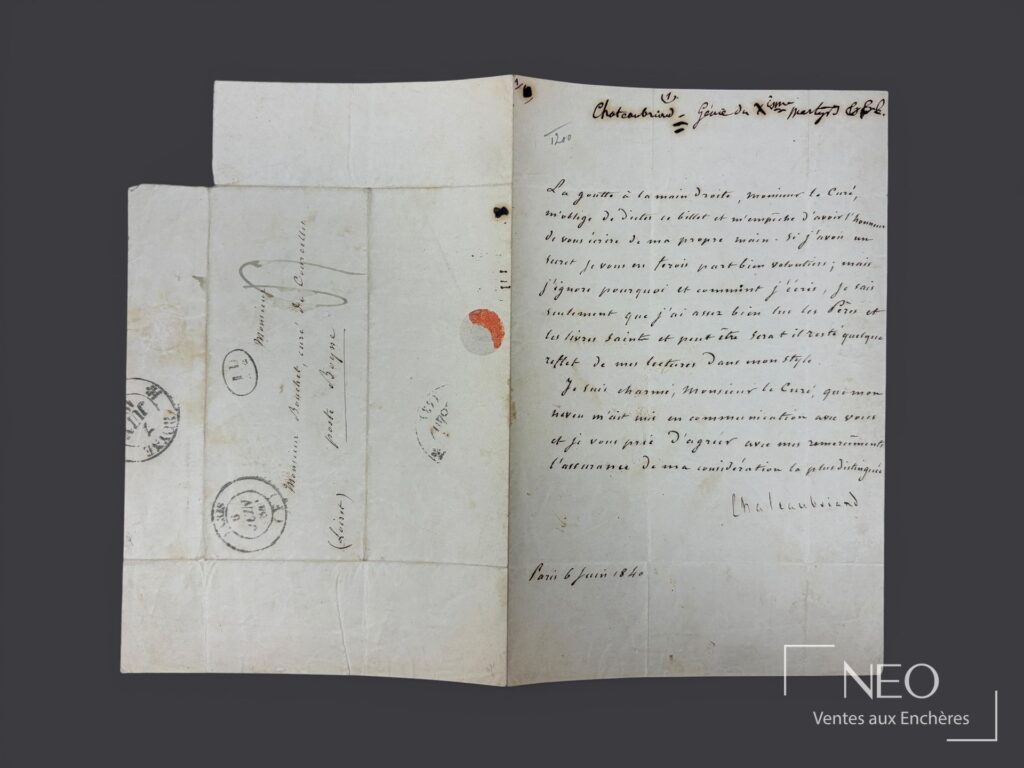 Chateaubriand = Génie du Xisme Martyrs &&&.
1200
La goutte à la main droite, Monsieur le Curé,
m'oblige de dicter ce billet et m'empêche d'avoir l'honneur
de vous écrire de ma propre main. Si j'avois un
secret je vous en ferois part bien volontiers ; mais
j'ignore pourquoi et comment j'écris, je sais
seulement que j'ai assez bien lu les Pères et
les livres saints et peut être sera t il resté quelque
reflet de mes lectures dans mon style.
Je suis charmé, Monsieur le Curé, que mon
neveu m'ait mis en communication avec vous
et je vous prie d'agréer avec mes remerciements
l'assurance de ma considération la plus distinguée
Chateaubriand
Paris 6 Juin 1840
Monsieur
Monsieur Bouchet, curé de Courcelles
poste Boyne
(Loiret)
PARIS
6
JUIN
NEO
Ventes aux Enchères